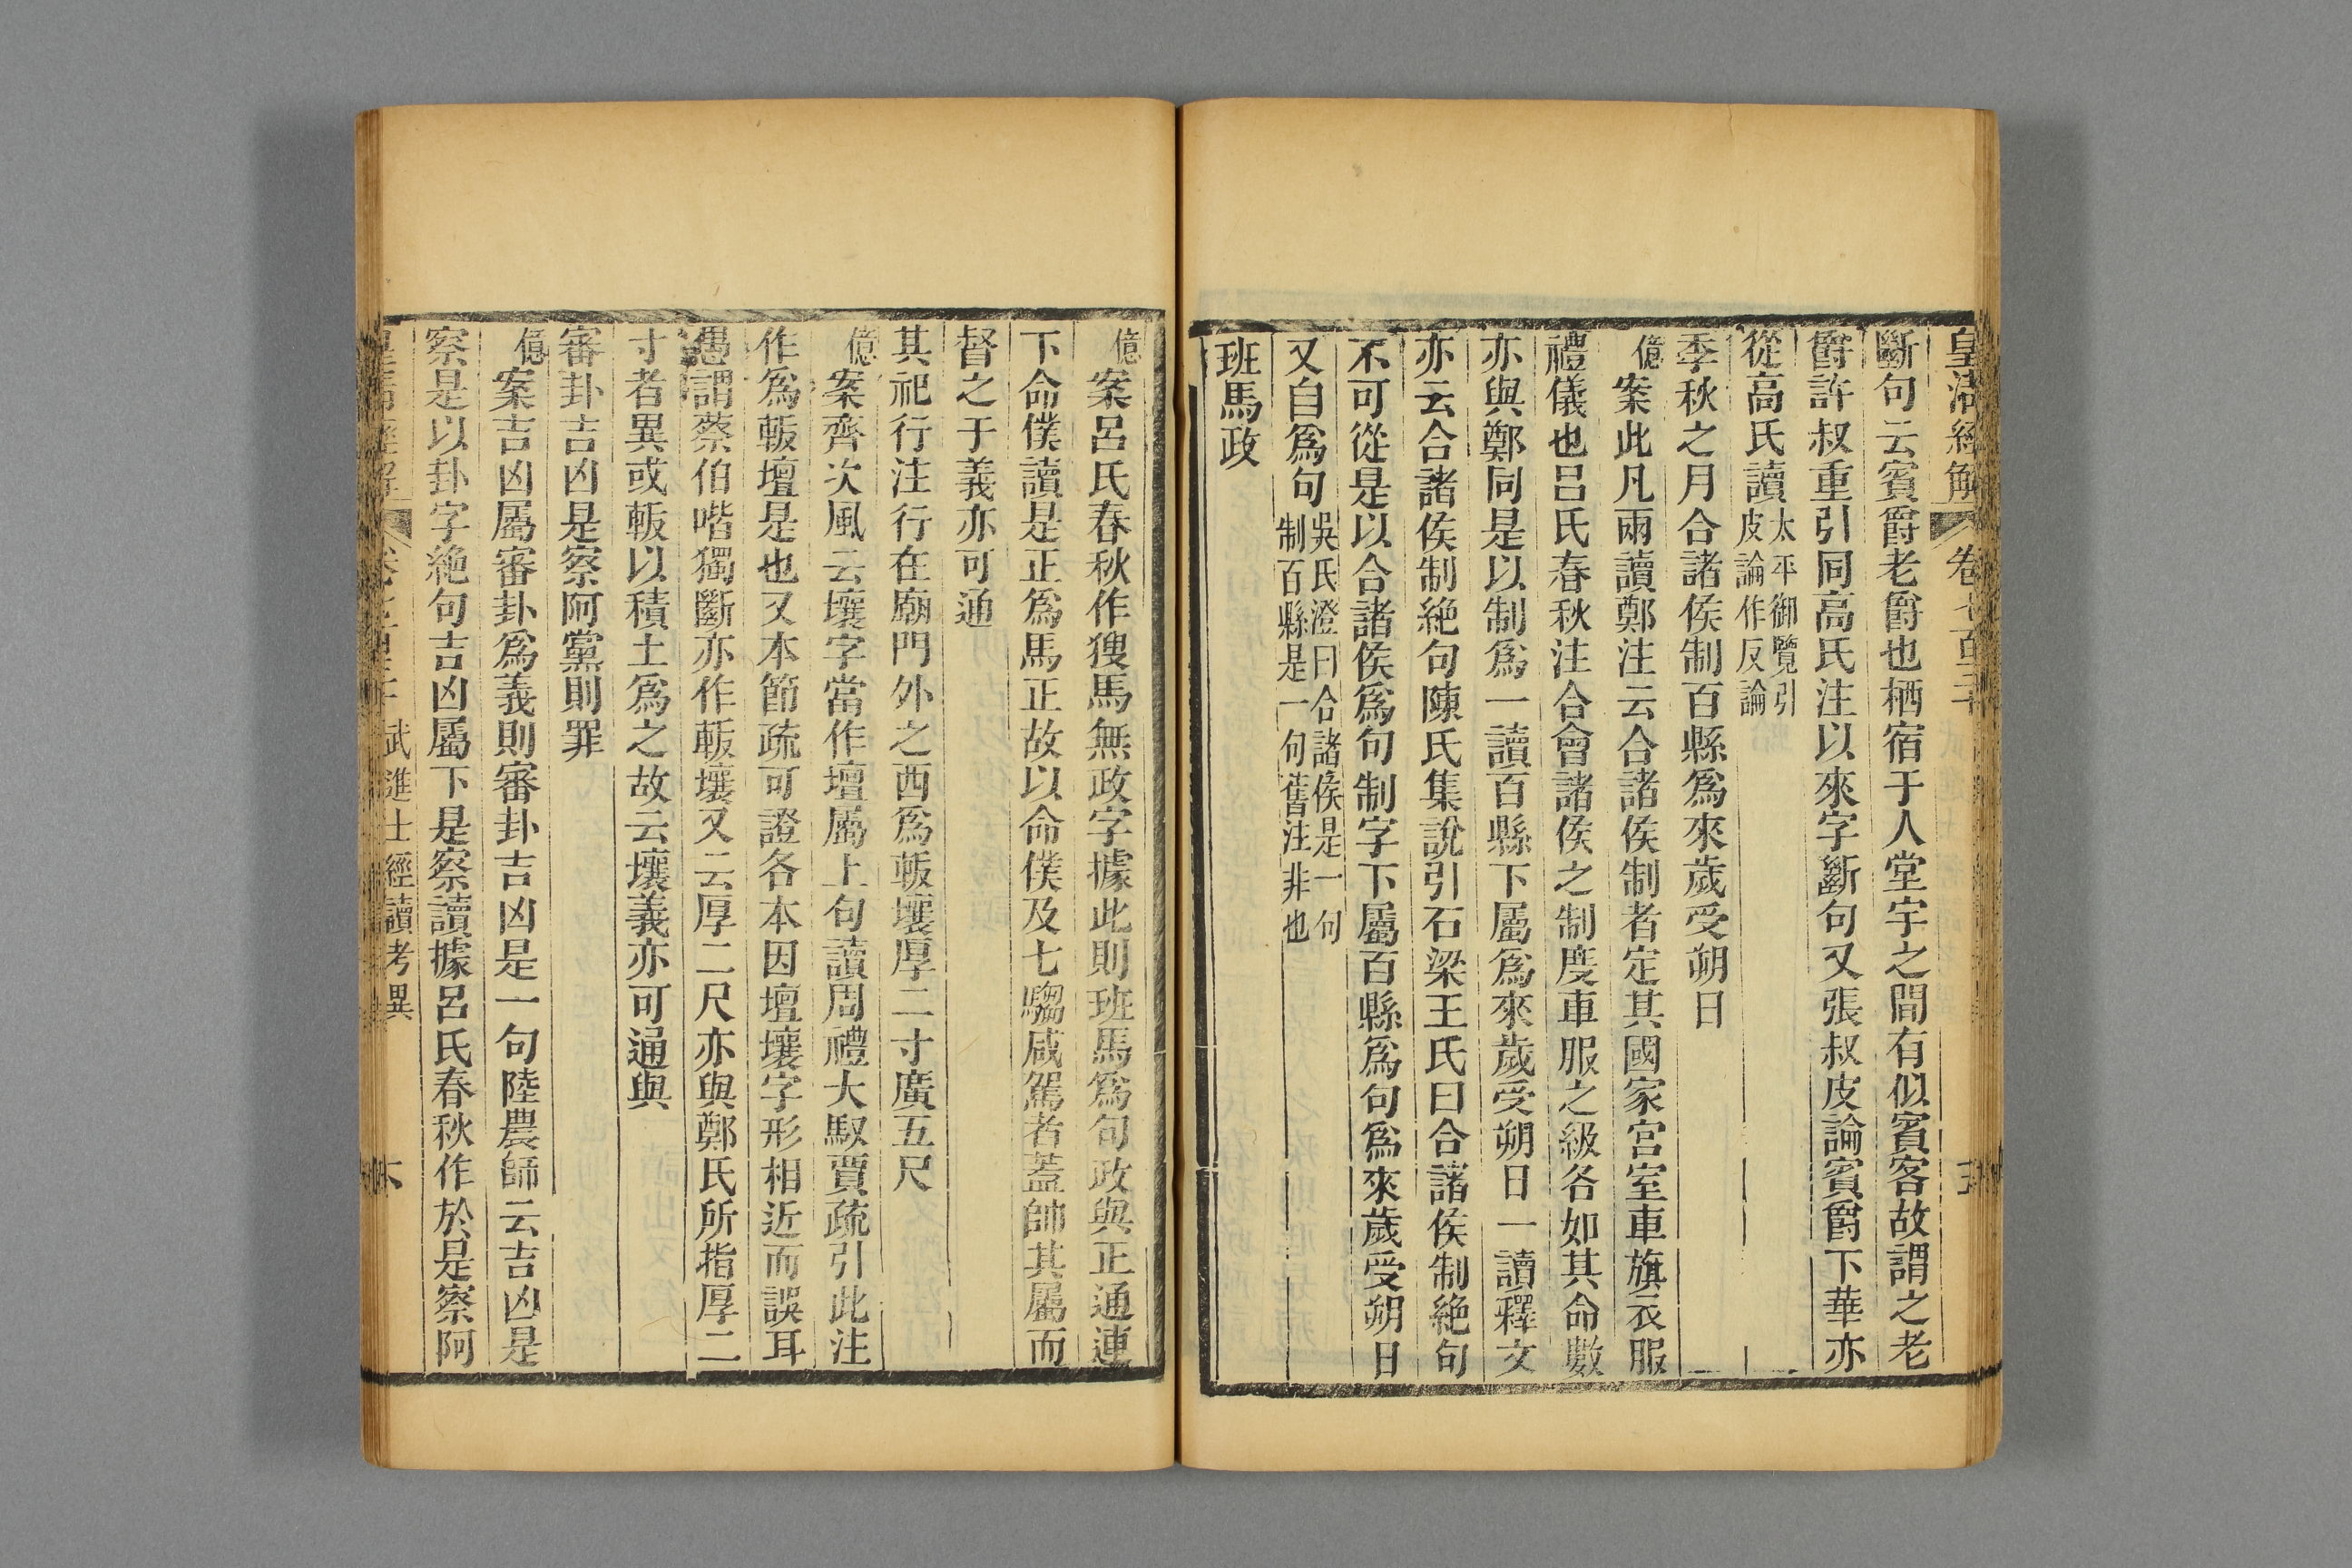 皇清經解
卷七百三十
斷句云賓爵老爵也栖宿于人堂宇之間有似賓客故謂之老
爵許叔重引同高氏注以來字斷句又張叔皮論賓爵下華亦
從高氏讀太平御覽引
皮論作反論
季秋之月合諸侯制百縣爲來歲受朔日
億案此凡兩讀鄭注云合諸侯制者定其國家宮室車旗衣服
禮儀也呂氏春秋注合會諸侯之制度車服之級各如其命數
亦與鄭同是以制爲一讀百縣下屬爲來歲受朔日一讀釋文
亦云合諸侯制絶句陳氏集說引石梁王氏曰合諸侯制絶句
不可從是以合諸侯爲句制字下屬百縣爲句爲來歲受朔日
又自爲句吳氏澄曰合諸侯是一句
制百縣是一句舊注非也
班馬政
億案呂氏春秋作獀馬無政字據此則班馬爲句政與正通連
下命僕讀是正爲馬正故以命僕及七騶咸駕者蓋帥其屬而
督之于義亦可通
其祀行注行在廟門外之西爲軷壤厚二寸廣五尺
億案齊次風云壤字當作壇屬上句讀周禮大馭賈疏引此注
作爲軷壇是也又本節疏可證各本因壇壤字形相近而誤耳
愚謂蔡伯喈獨斷亦作軷壤又云厚二尺亦與鄭氏所指厚二
寸者異或軷以積土爲之故云壤義亦可通與
審卦吉凶是察阿黨則罪
億案吉凶屬審卦爲義則審卦吉凶是一句陸農師云吉凶是
察是以卦字絶句吉凶屬下是察讀據呂氏春秋作於是察阿
武進士經讀考異